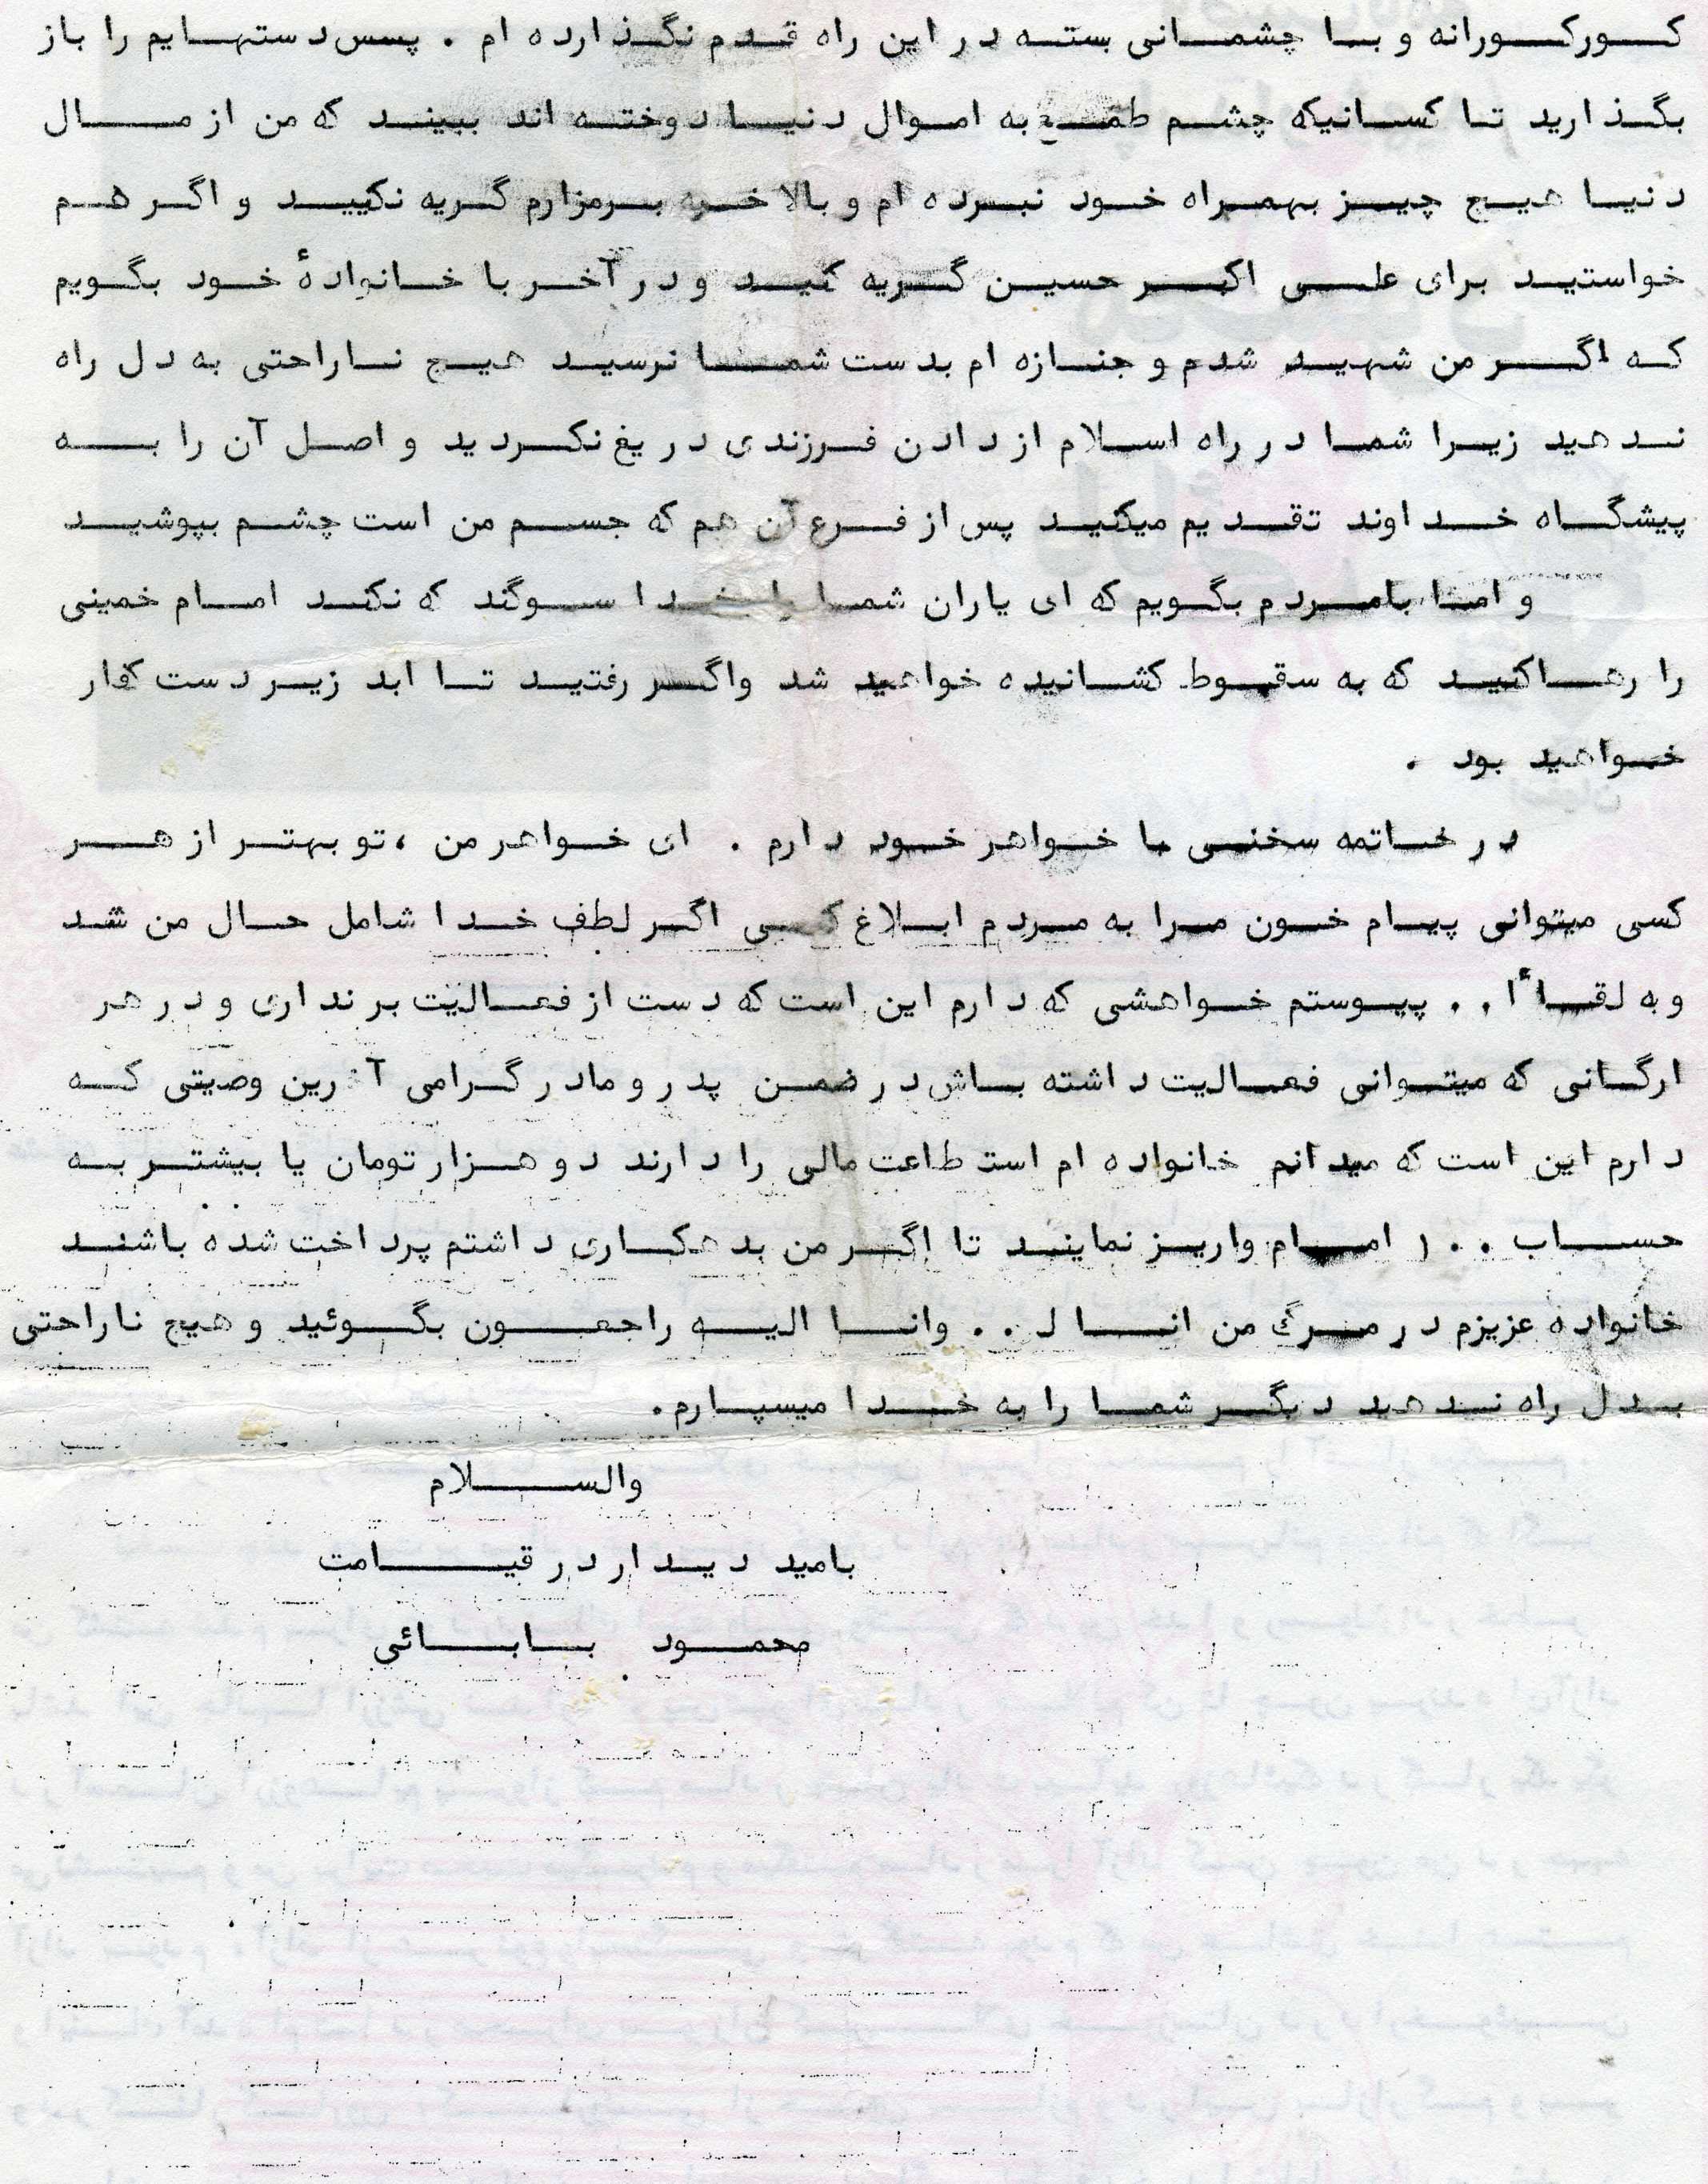 کورکورانه و با چشمانی بسته در این راه قدم نگذارده ام . پس دستهایم را باز
بگذارید تا کسانیکه چشم طمع به اموال دنیا دوخته اند ببیند که من از مال
دنیا هیچ چیز بهمراه خود نبرده ام و بالاخره برمزارم گریه نکنید و اگر هم
خواستید برای علی اکبر حسین گریه کنید و در آخر با خانوادهٔ خود بگویم
که اگر من شهید شدم و جنازه ام بدست شما نرسید هیچ ناراحتی به دل راه
ندهید زیرا شما در راه اسلام از دادن فرزندی دریغ نکردید و اصل آن را به
پیشگاه خداوند تقدیم میکنید پس از فرع آن هم که جسم من است چشم بپوشید
و اما بامردم بگویم که ای یاران شما را بخدا سوگند که نکند امام خمینی
را رها کنید که به سقوط کشانیده خواهید شد واگر رفتید تا ابد زیر دست کفار
خواهید بود .
در خاتمه سخنی با خواهر خود دارم . ای خواهر من ،تو بهتر از هر
کسی میتوانی پیام خون مرا به مردم ابلاغ کنی اگر لطف خدا شامل حال من شد
و به لقاءا . . پیوستم خواهشی که دارم این است که دست از فعالیت برنداری و در هر
ارگانی که میتوانی فعالیت داشته باش در ضمن پدر و مادر گرامی آخرین وصیتی که
دارم این است که میدانم خانواده ام استطاعت مالی را دارند دو هزار تومان یا بیشتر به
حساب ۱۰۰ امام واریز نمایند تا اگر من بدهکاری داشتم پرداخت شده باشند
خانواده عزیزم در مرگ من انا ل . . وانا الیه راجعون بگوئید و هیچ ناراحتی
بدل راه ندهید دیگر شما را به خدا میسپارم.
والسلام
بامید دیدار در قیامت
محمود بابائی